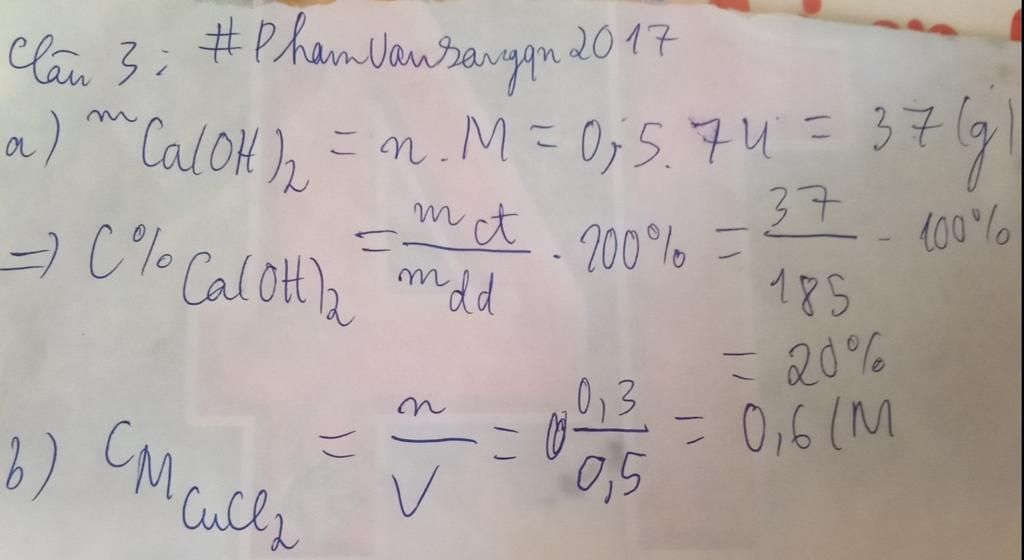 Câu 3: #Phamvansangqn2017
a) mCa(OH)2 = n. M = 0,5. 74 = 37 (g)
=) C% Ca(OH)2 = mct / mdd . 100% = 37 / 185 . 100%
= 20%
b) CM CuCl2 = n / V = 0,3 / 0,5 = 0,6 (M